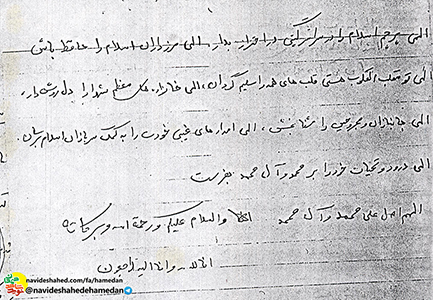 الهی پرچم اسلام را در سراسر گیتی در اهتزاز بدار. الهی مرزداران اسلام را حافظ باش
الهی تو مقلب القلوب هستی قلب های همه را سلیم گردان، الهی خانواده معظم شهدا را دل روشن دار،
الهی جانبازان و مجروحین را شفا بخش، الهی امدادهای غیبی خودت را به کمک سربازان اسلام برسان.
الهی درود و تحیات خود را بر محمد و آل محمد بفرست
اللهم صل علی محمد و آل محمد والسلام علیکم و رحمة الله و برکاته
انا لله و انا الیه راجعون
navideshahed.com/fa/hamedan
@navideshahedehamedan